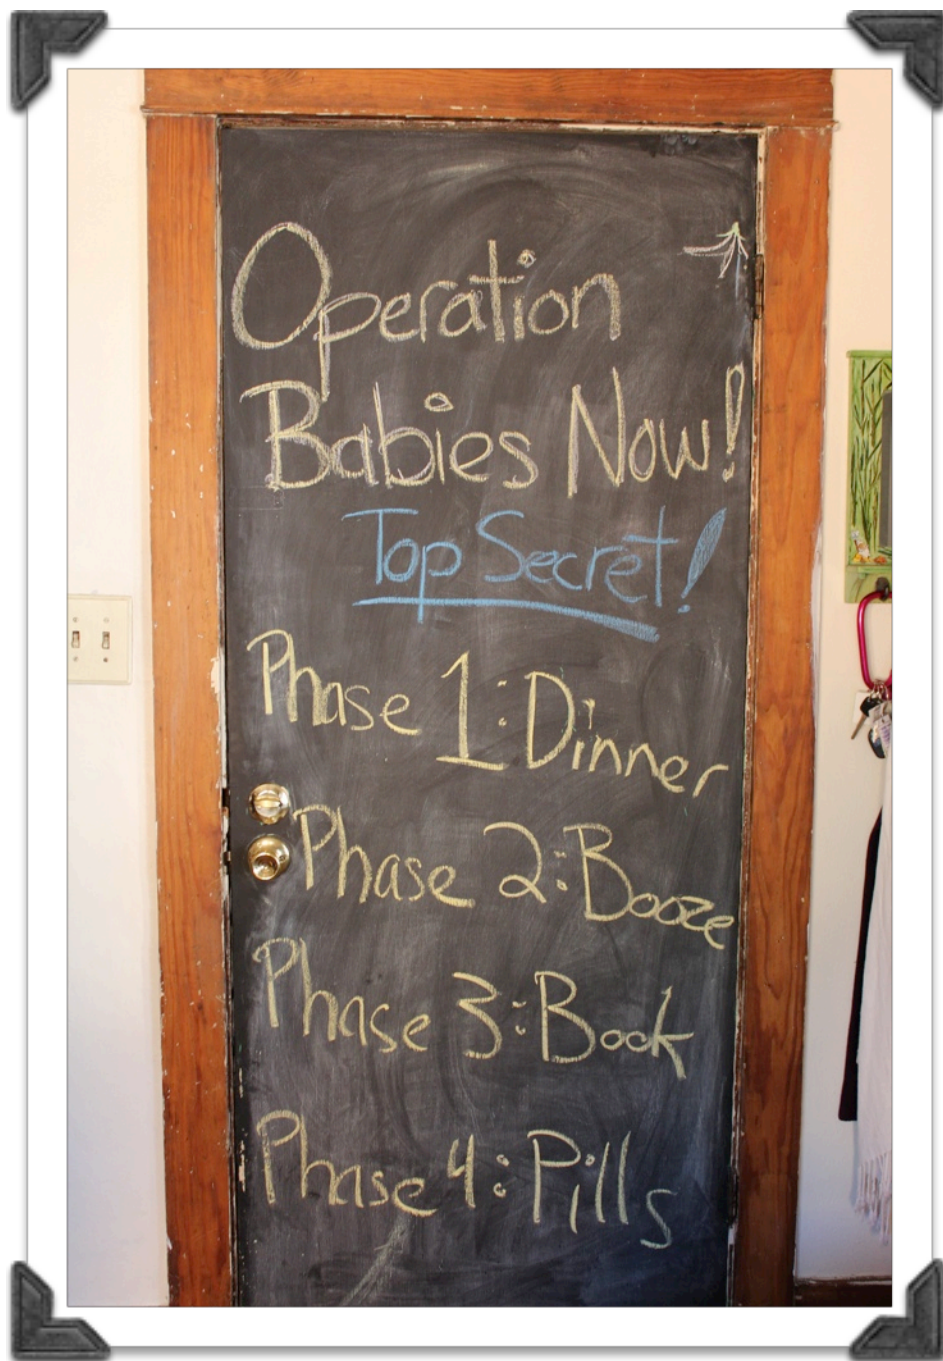 Operation
Babies Now!
Top Secret!
Phase 1: Dinner
Phase 2: Booze
Phase 3: Book
Phase 4: Pills